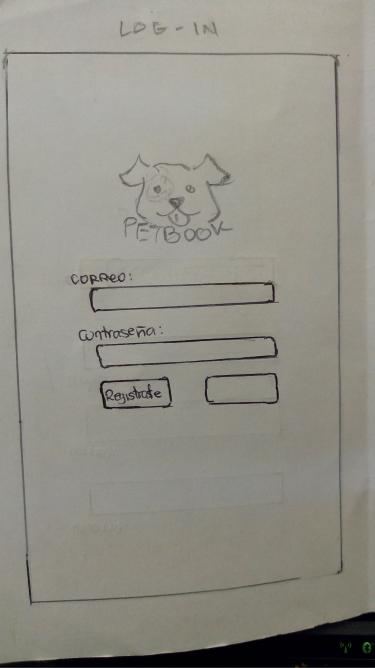 LOG-IN
PETBOOK
CORREO:
Contraseña:
Registrate